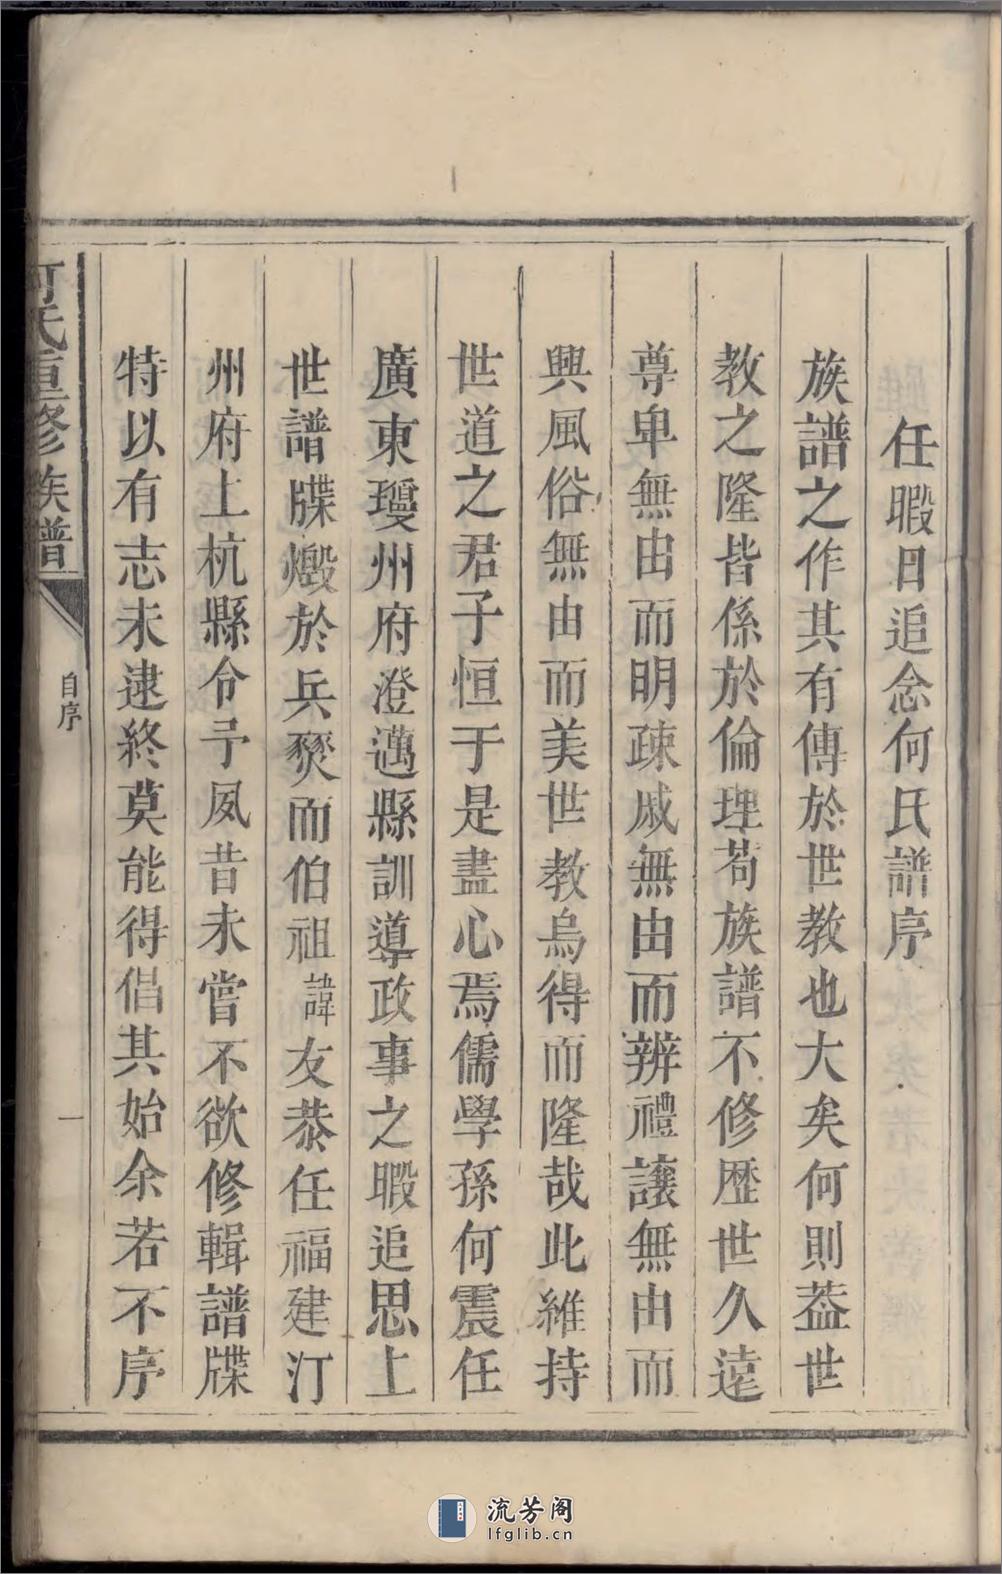 任暇日追念何氏譜序
族譜之作其有傳於世教也大矣何則葢世
教之隆皆係於倫理苟族譜不修歴世久遠
尊卑無由而明疎戚無由而辨禮讓無由而
興風俗無由而美世教烏得而隆哉此維持
世道之君子恒于是盡心焉儒學孫何震任
廣東瓊州府澄邁縣訓導政事之暇追思上
世譜牒燬於兵燹而伯祖諱友恭任福建汀
州府上杭縣令予夙昔未嘗不欲修輯譜牒
特以有志未逮終莫能得倡其始余若不序
何氏重修族譜
自序
一
流芳阁
lfglib.cn